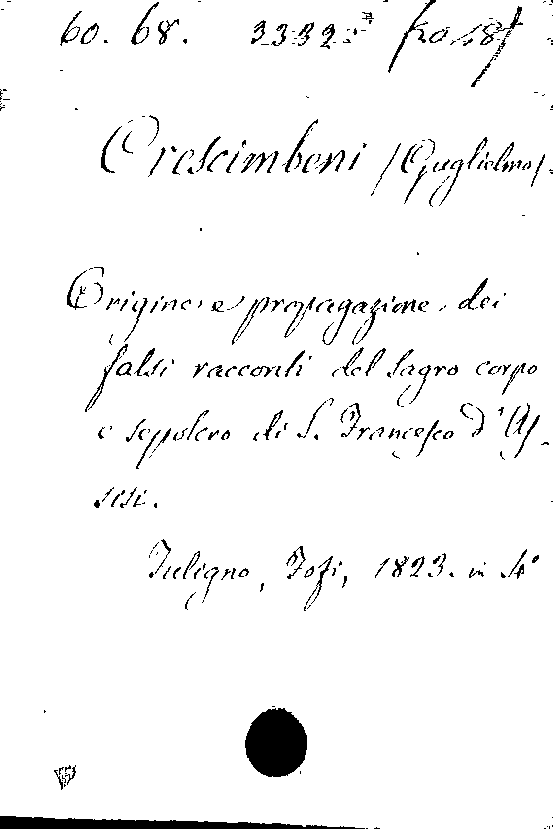 60. 68. 3332
Crescimbeni /Guglielmo/.
Origine e propagazione dei
falsi racconti del Sagro corpo
e sepolcro di S. Francesco d'As-
sisi.
Fuligno, Tofi, 1823. in 4°